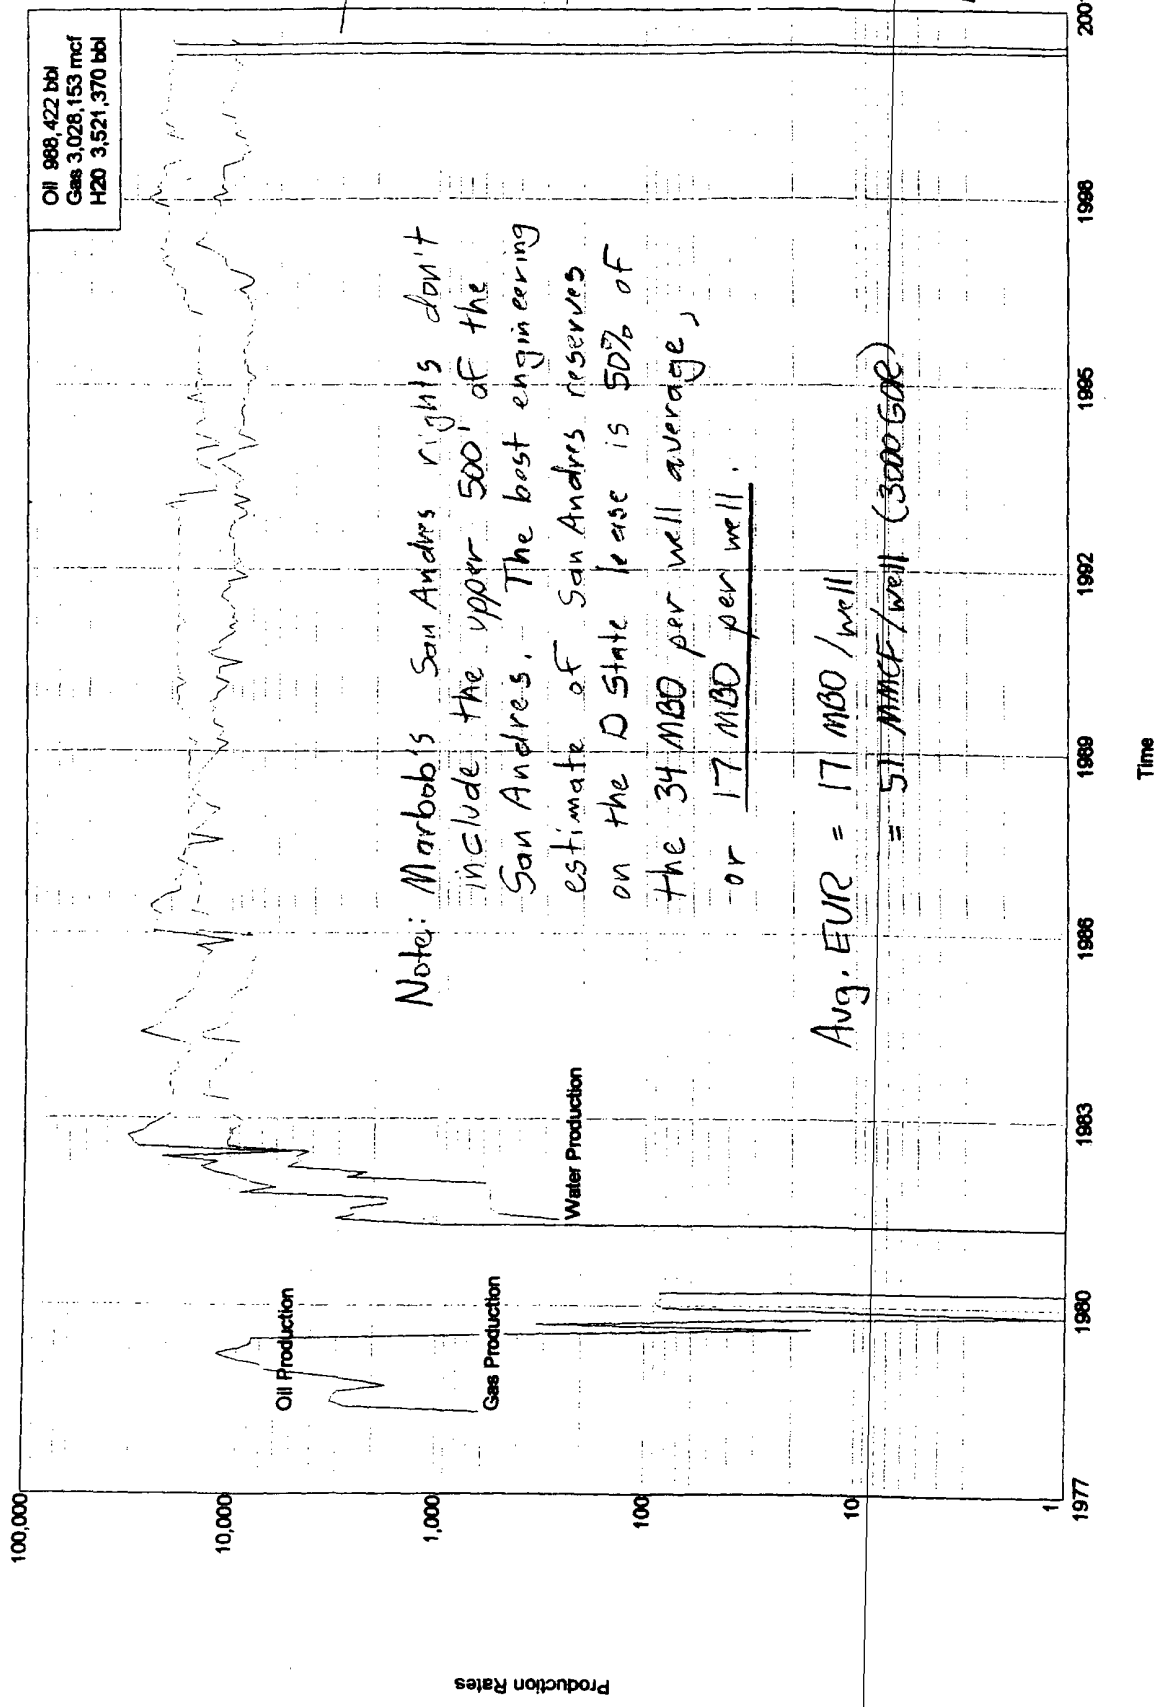 Oil 988,422 bbl
Gas 3,028,153 mcf
H20 3,521,370 bbl
100,000
10,000
1,000
100
10
1
Production Rates
Oil Production
Gas Production
Water Production
Note: Marbob's San Andres rights don't
include the upper 500' of the
San Andres. The best engineering
estimate of San Andres reserves
on the D State lease is 50% of
the 34 MBO per well average,
or 17 MBO per well.
Avg. EUR = 17 MBO/well
= 51 MMCF/well (3000 GOR)
1977
1980
1983
1986
1989
1992
1995
1998
Time